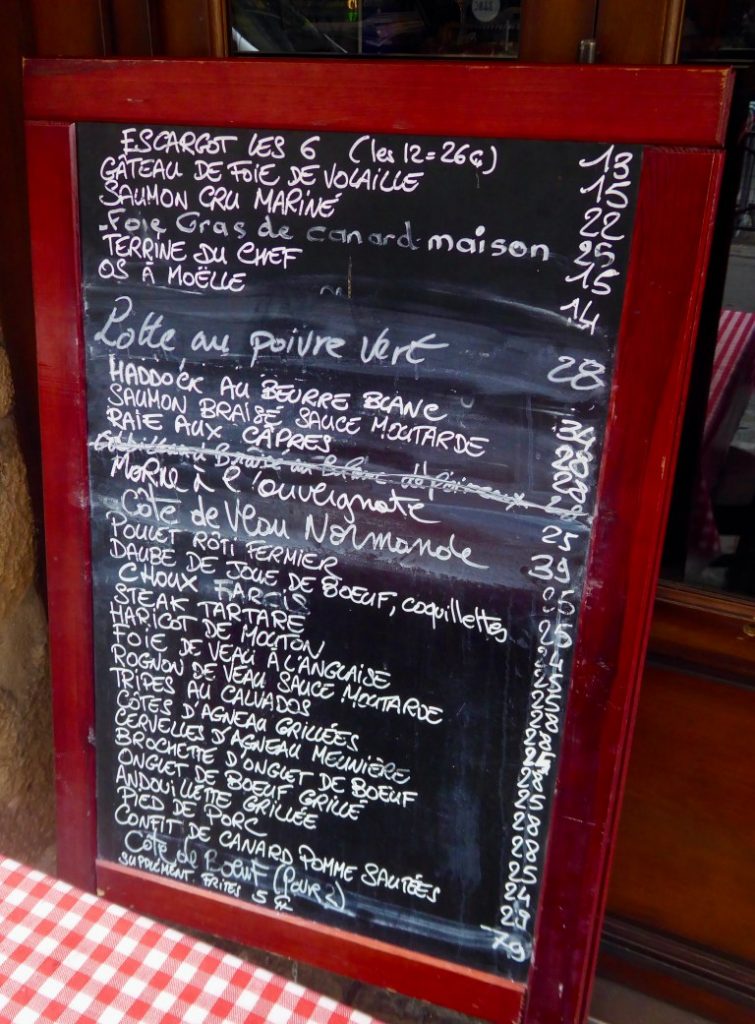 ESCARGOT LES 6 (les 12 = 26€) 13
GÂTEAU DE FOIE DE VOLAILLE 15
SAUMON CRU MARINÉ 22
Foie Gras de canard maison 25
TERRINE DU CHEF 15
OS À MOËLLE 14
Lotte au poivre vert 28
HADDOCK AU BEURRE BLANC
SAUMON BRAISÉ SAUCE MOUTARDE 28
RAIE AUX CÂPRES 28
Braisé au Blanc de poireaux
Morue à l'auvergnate 25
Côte de Veau Normande 39
POULET RÔTI FERMIER
DAUBE DE JOUE DE BOEUF, coquillettes 25
CHOUX FARCIS
STEAK TARTARE
HARICOT DE MOUTON
FOIE DE VEAU À L'ANGLAISE
ROGNON DE VEAU SAUCE MOUTARDE
TRIPES AU CALVADOS
CÔTES D'AGNEAU GRILLÉES
CERVELLES D'AGNEAU MEUNIÈRE
BROCHETTE D'ONGLET DE BOEUF 25
ONGLET DE BOEUF GRILLÉ 28
ANDOUILLETTE GRILLÉE 28
PIED DE PORC 25
CONFIT DE CANARD POMME SAUTÉES 24
Côte de Boeuf (Pour 2) 79
SUPPLEMENT FRITES 5 €